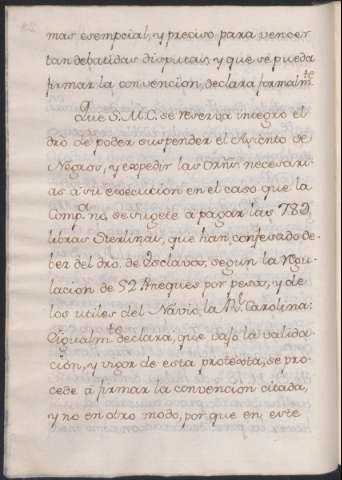 mas esempcial, y preciso para vencer
tan debatidas disputas, y que se pueda
firmar la convencion, declara formalm.te
Que S. M. C. se reserva integro el
dro de poder suspender el Asiento de
Negros, y expedir las Orñs necesari-
as a su execucion en el caso que la
Comp.a no se sugete a pagar las 78@
libras Sterlinas, que han confesado de-
ber del dro. de Esclavos, segun la Regu-
lacion de 52 Aneques por peso, y de
los utiles del Navio la R.l Carolina:
Eigualm.te declara, que vajo la valida-
cion, y vigor de esta protexta, se pro-
cede a firmar la convencion citada,
y no en otro modo, por que en este